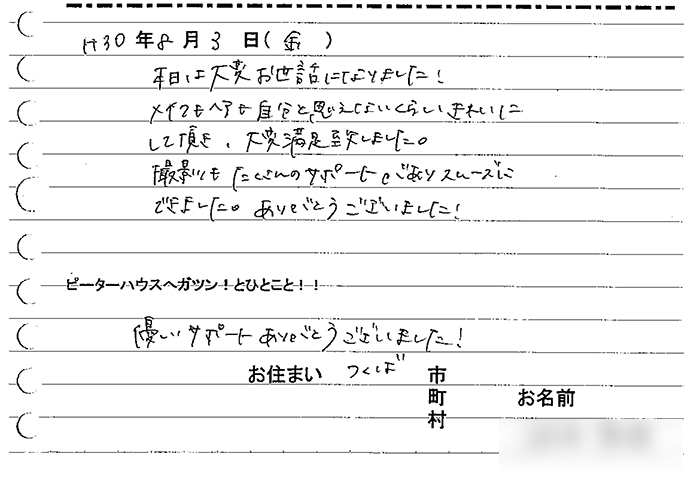 H30年8月3日(金)
本日は大変お世話になりました!
メイクもヘアも自分と思えないくらいきれいに
して頂き、大変満足致しました。
撮影もたくさんのサポートがありスムーズに
できました。ありがとうございました!
ピーターハウスへガツン!とひとこと!!
優しいサポートありがとうございました!
お住まい つくば 市
町 お名前
村